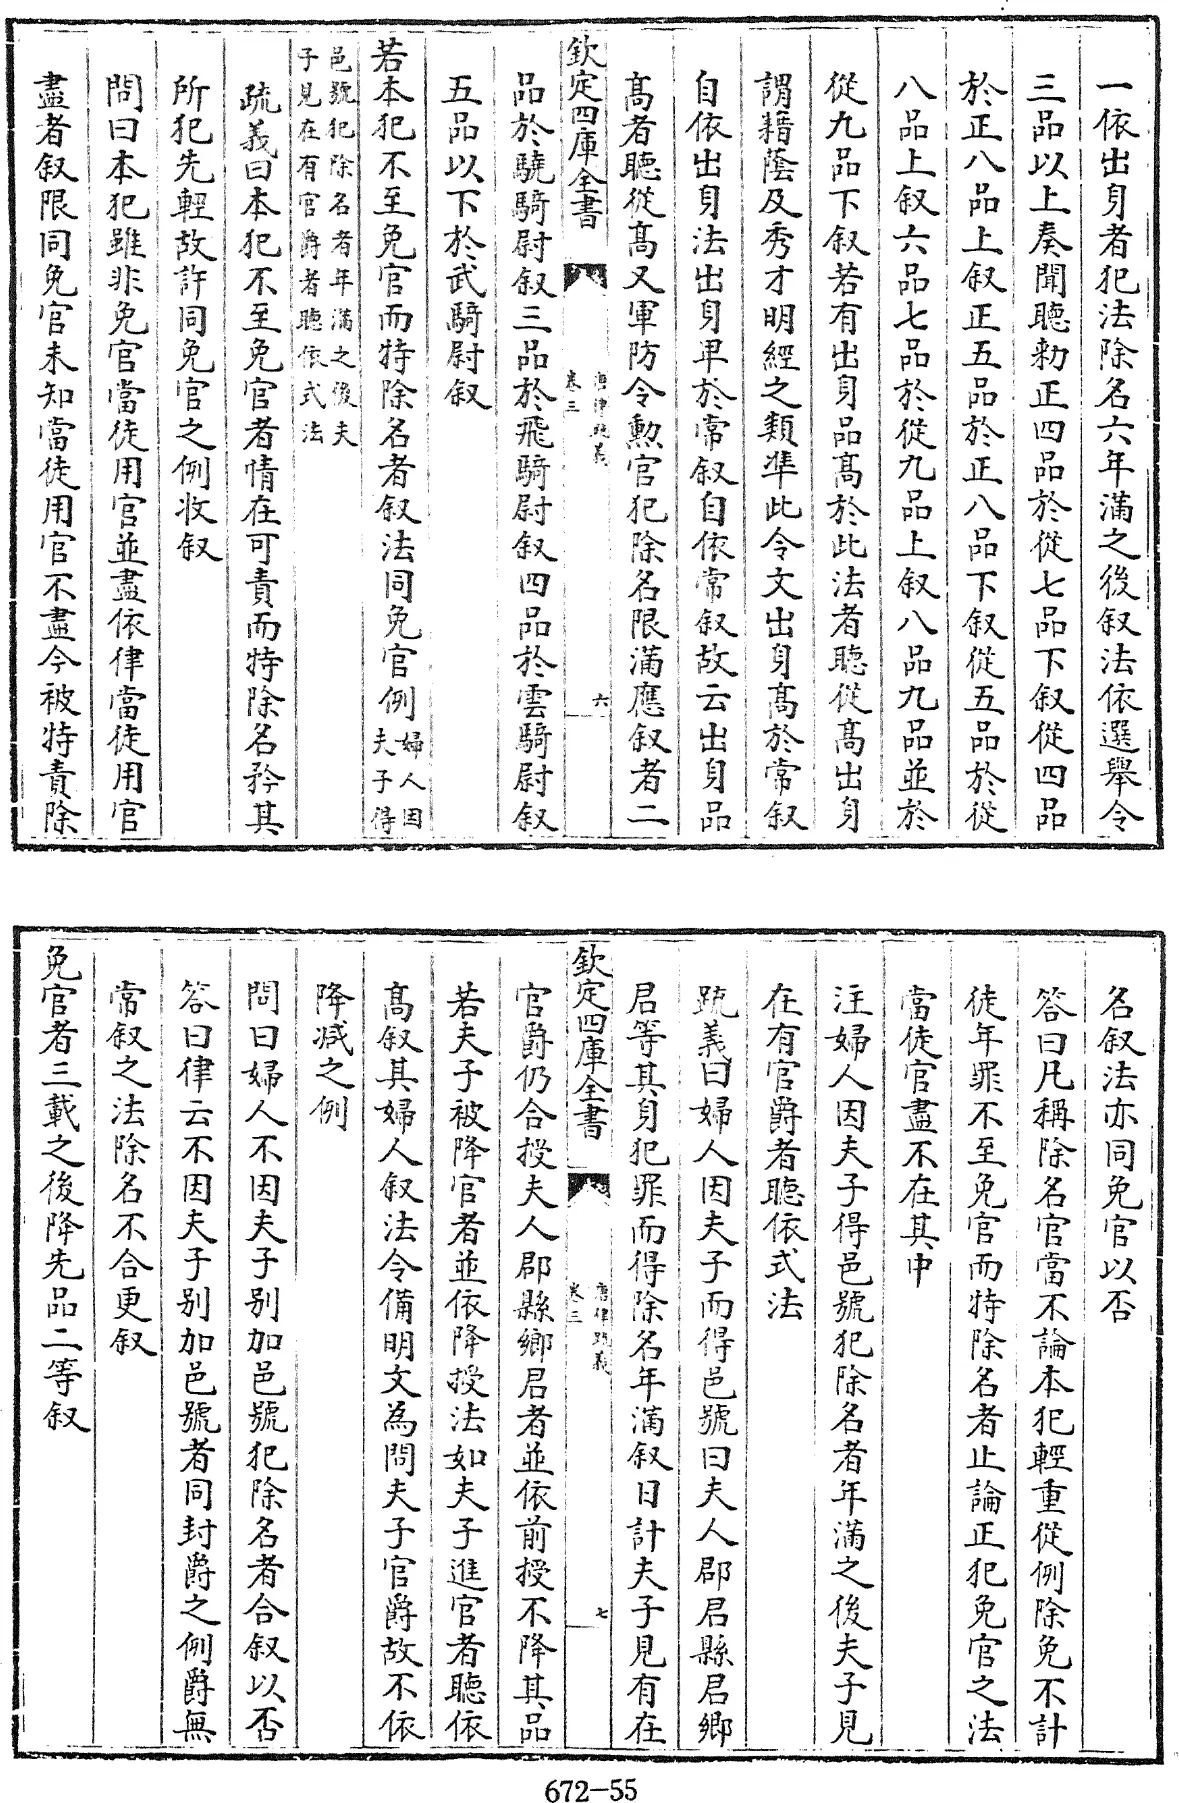 一依出身者犯法除名六年滿之後叙法依選舉令
三品以上奏聞聽勅正四品於從七品下叙從四品
於正八品上叙正五品於正八品下叙從五品於從
八品上叙六品七品於從九品上叙八品九品並於
從九品下叙若有出身品髙於此法者聽從髙出身
謂籍蔭及秀才明經之類凖此令文出身髙於常叙
自依出身法出身卑於常叙自依常叙故云出身品
髙者聽從髙又軍防令勲官犯除名限滿應叙者二
欽定四庫全書
唐律疏義
卷三
六
品於驍騎尉叙三品於飛騎尉叙四品於雲騎尉叙
五品以下於武騎尉叙
若本犯不至免官而特除名者叙法同免官例婦人因
夫子得
邑號犯除名者年滿之後夫
子見在有官爵者聽依式法
疏義曰本犯不至免官者情在可責而特除名矜其
所犯先輕故許同免官之例收叙
問曰本犯雖非免官當徒用官並盡依律當徒用官
盡者叙限同免官未知當徒用官不盡今被特責除
名叙法亦同免官以否
答曰凡稱除名官當不論本犯輕重從例除免不計
徒年罪不至免官而特除名者止論正犯免官之法
當徒官盡不在其中
注婦人因夫子得邑號犯除名者年滿之後夫子見
在有官爵者聽依式法
疏義曰婦人因夫子而得邑號曰夫人郡君縣君鄉
君等其身犯罪而得除名年滿叙日計夫子見有在
欽定四庫全書
唐律疏義
卷三
七
官爵仍合授夫人郡縣鄉君者並依前授不降其品
若夫子被降官者並依降授法如夫子進官者聽依
髙叙其婦人叙法令備明文為問夫子官爵故不依
降减之例
問曰婦人不因夫子别加邑號犯除名者合叙以否
答曰律云不因夫子别加邑號者同封爵之例爵無
常叙之法除名不合更叙
免官者三載之後降先品二等叙
672-55